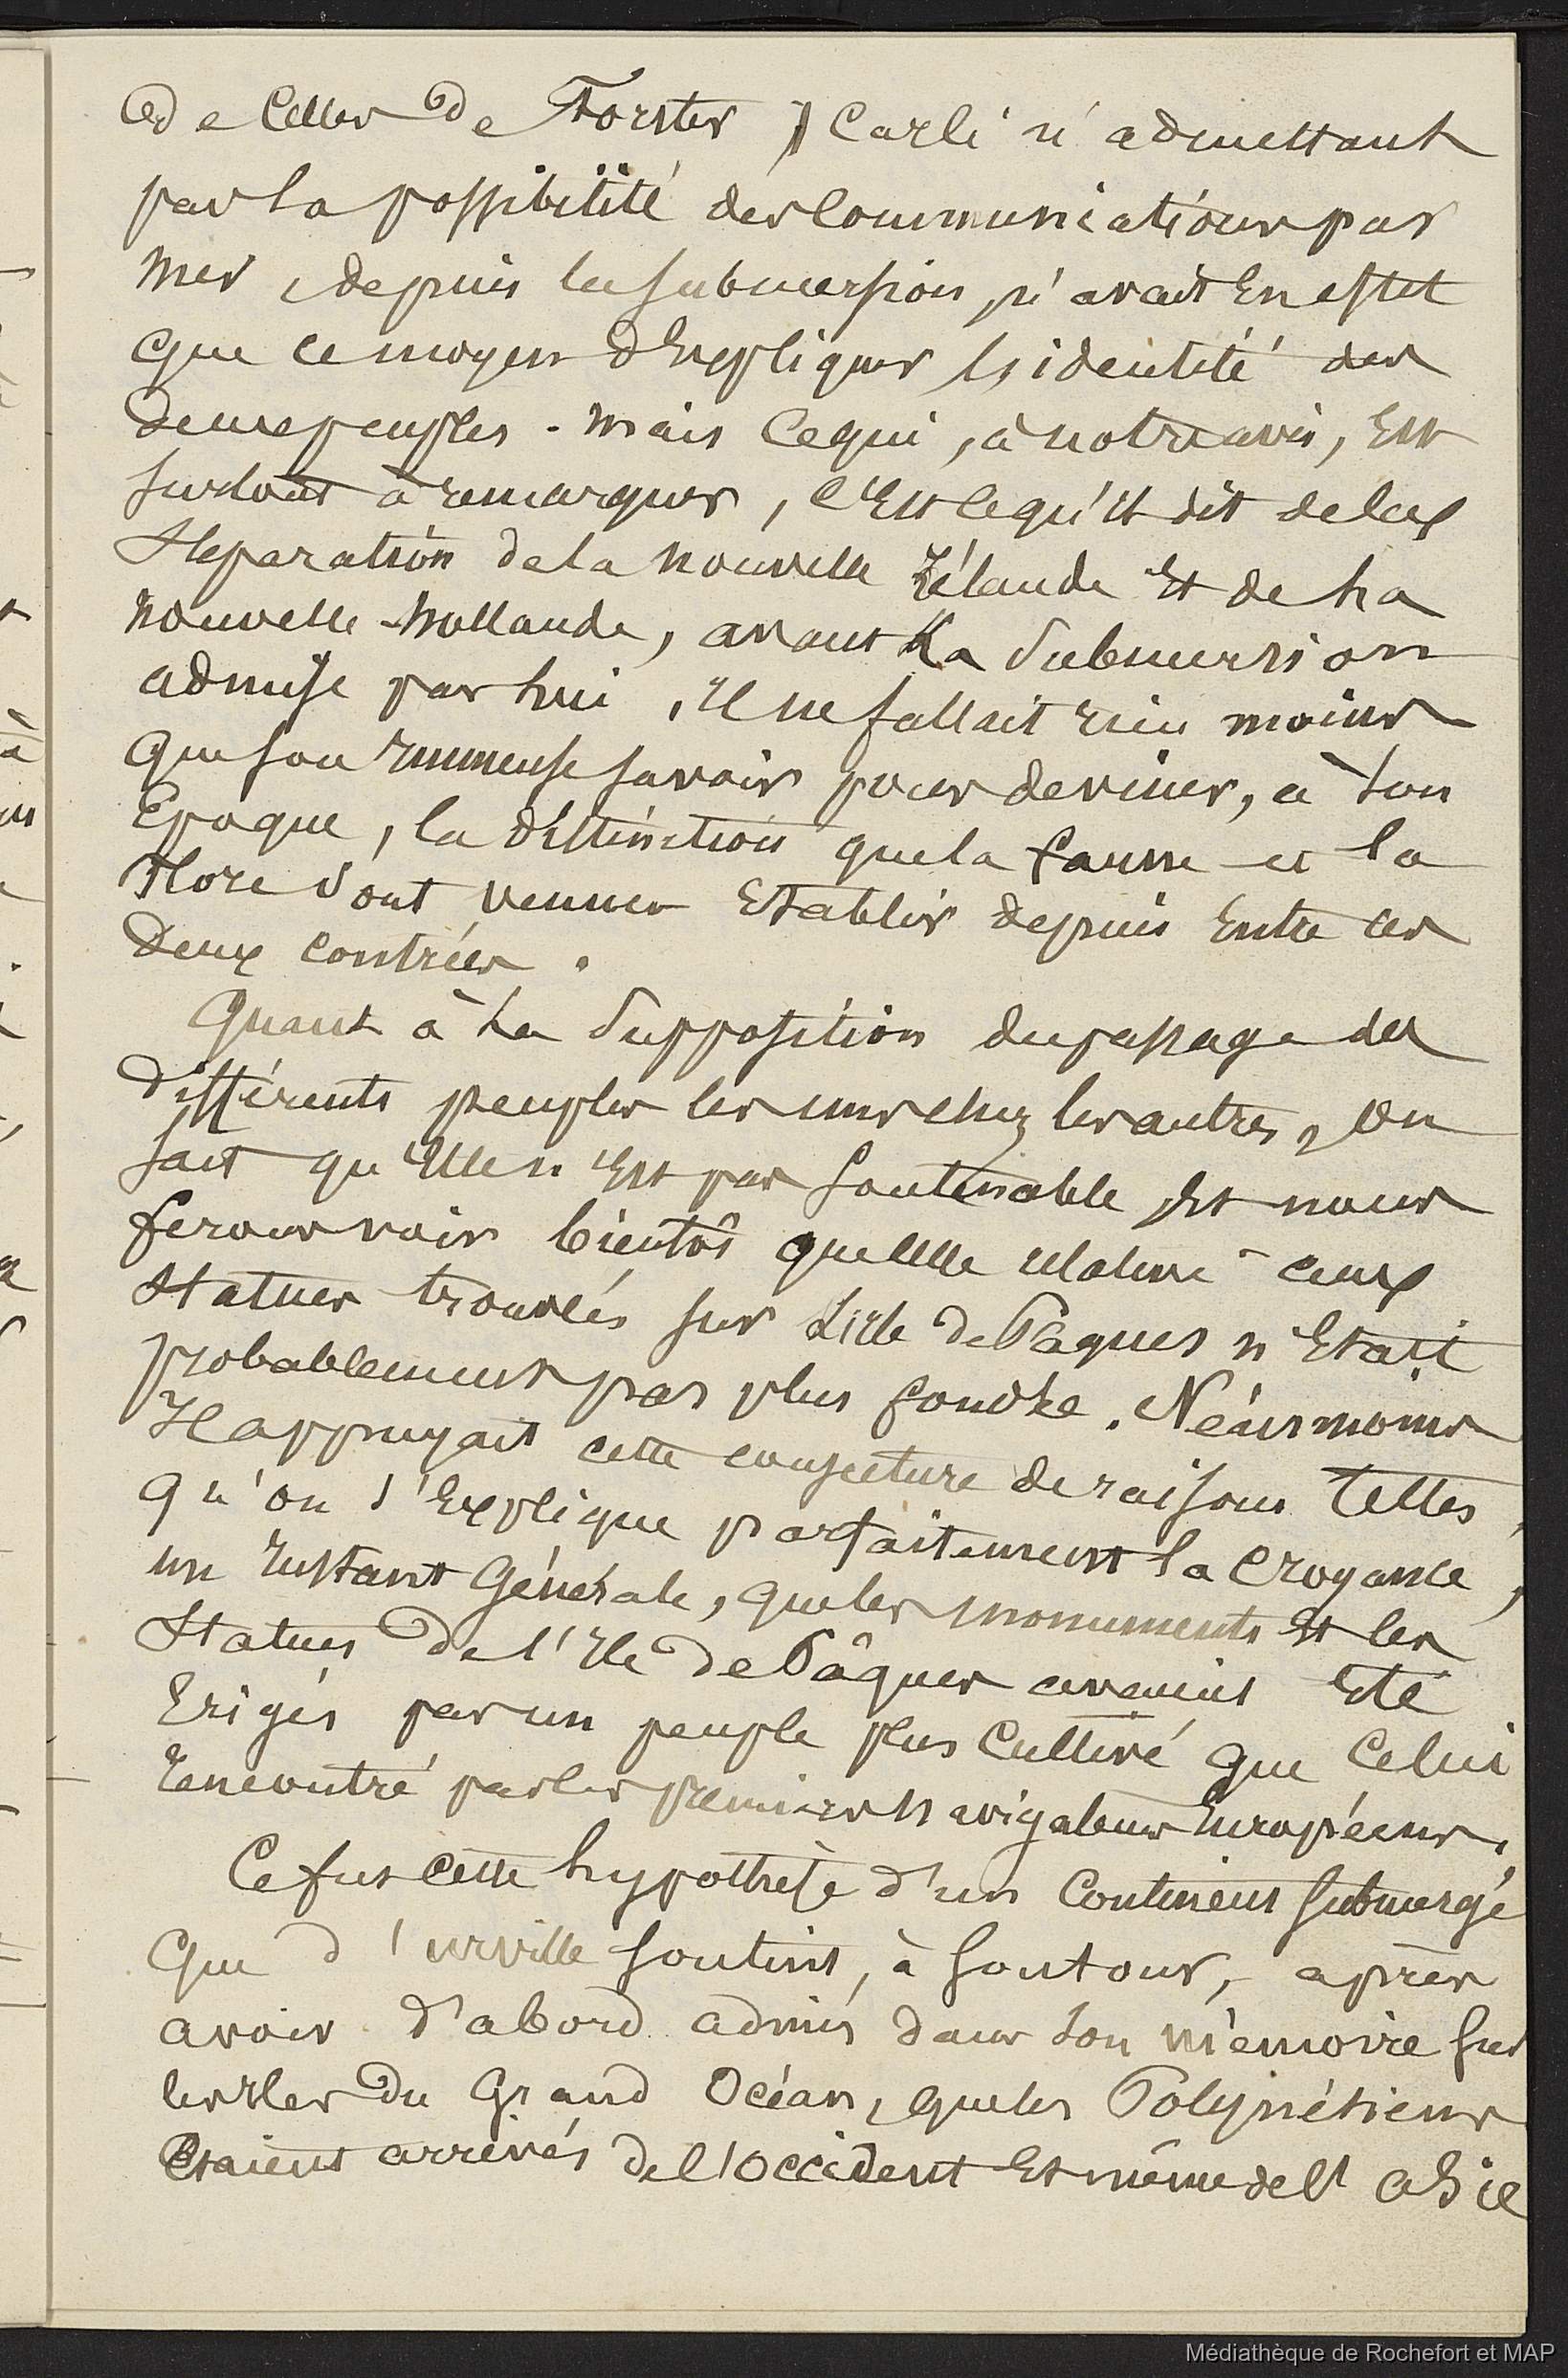 de celles de Forster ; Carli n'admettant
pas la possibilité des communications par
mer, depuis la submersion, n'avait en effet
que ce moyen d'expliquer l'identité des
deux peuples. Mais ce qui, à notre avis, est
surtout à remarquer, c'est ce qu'il dit de la
séparation de la nouvelle Zélande et de la
nouvelle-hollande, avant la submersion
admise par lui, Il ne fallait rien moins
que son immense savoir pour deviner, à son
Epoque, la distinction que la faune et la
Flore sont venues Etablir depuis Entre ces
deux contrées.
Quant à la supposition du passage des
différents peuples les uns chez les autres, on
sait qu'Elle n'Est pas soutenable, Et nous
ferons voir bientôt que celle relative aux
statues trouvées sur L'île de Pâques n'Etait
probablement pas plus fondée. Néanmoins
Il appuyait cette conjecture de raisons telles,
qu'on s'Explique parfaitement la croyance,
un Instant Générale, que les monuments Et les
statues de l'Ile de Pâques avaient Eté
Erigés par un peuple plus cultivé que celui
rencontré par les premiers navigateurs Européens.
Ce fut cette hypothèse d'un continent submergé
que d'urville soutint, à son tour, après
avoir d'abord admis dans son mémoire sur
les Iles du Grand Océan, que les Polynésiens
Etaient arrivés de l'Occident Et même de l'asie
Médiathèque de Rochefort et MAP